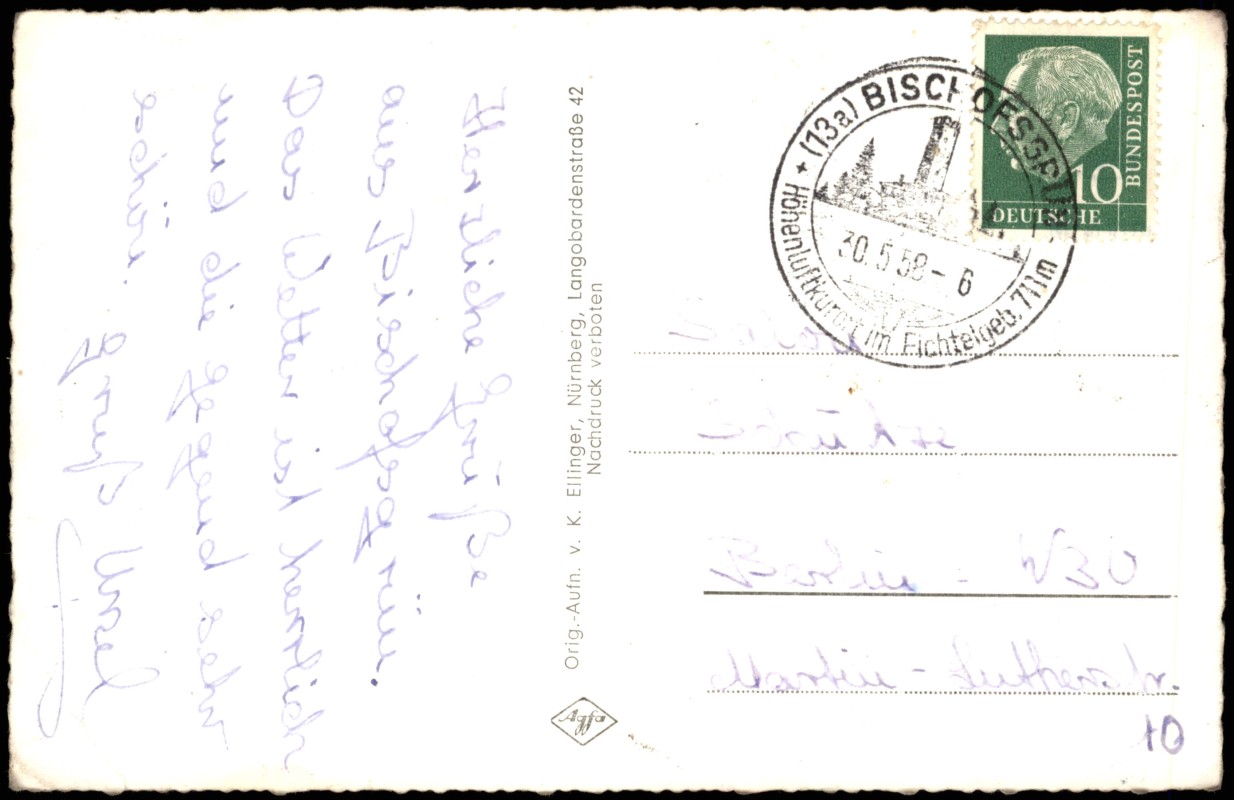 Herzliche Grüße
aus Bischofsgrün.
Das Wetter ist herrlich
und die Gegend sehr
schön.
Gruß Ursel
Orig.-Aufn. v. K. Ellinger, Nürnberg, Langobardenstraße 42
Nachdruck verboten
Agfa
(13a) BISCHOFSGRÜN
30.5.58-6
Höhenluftkurort im Fichtelgeb. 711m
10
DEUTSCHE
BUNDESPOST
Salon
Schultze
Berlin - W30
Martin-Lutherstr.
10